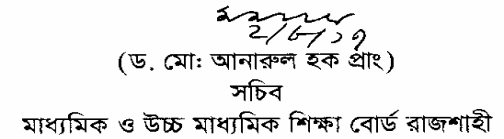 ২/৮/১৭
(ড. মোঃ আনারুল হক প্রাং)
সচিব
মাধ্যমিক ও উচ্চ মাধ্যমিক শিক্ষা বোর্ড রাজশাহী